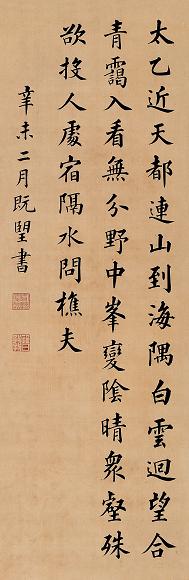 太乙近天都連山到海隅白雲迴望合
青靄入看無分野中峯變陰晴衆壑殊
欲投人處宿隔水問樵夫
辛未二月既朢書